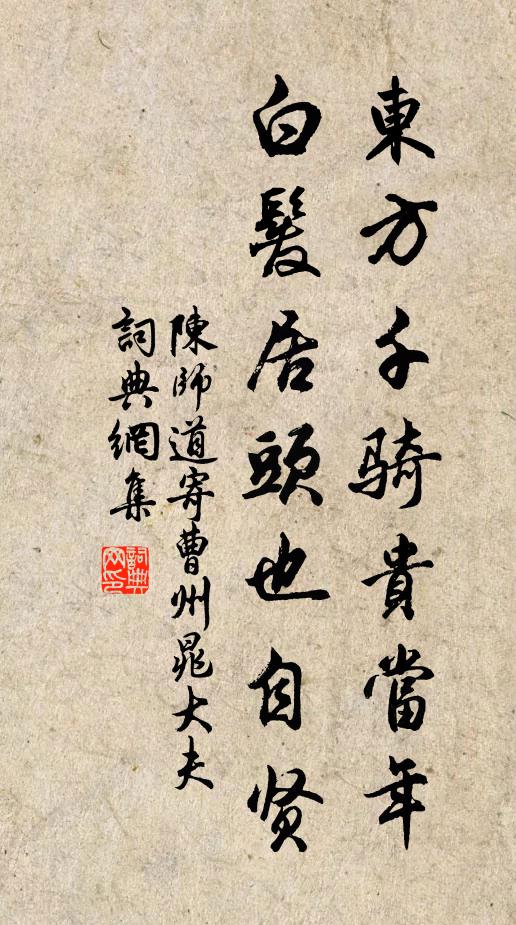 東方千騎貴當年
白髮居頭也自贤
陳師道寄曹州晁大夫
詞典網集
詞典
网印